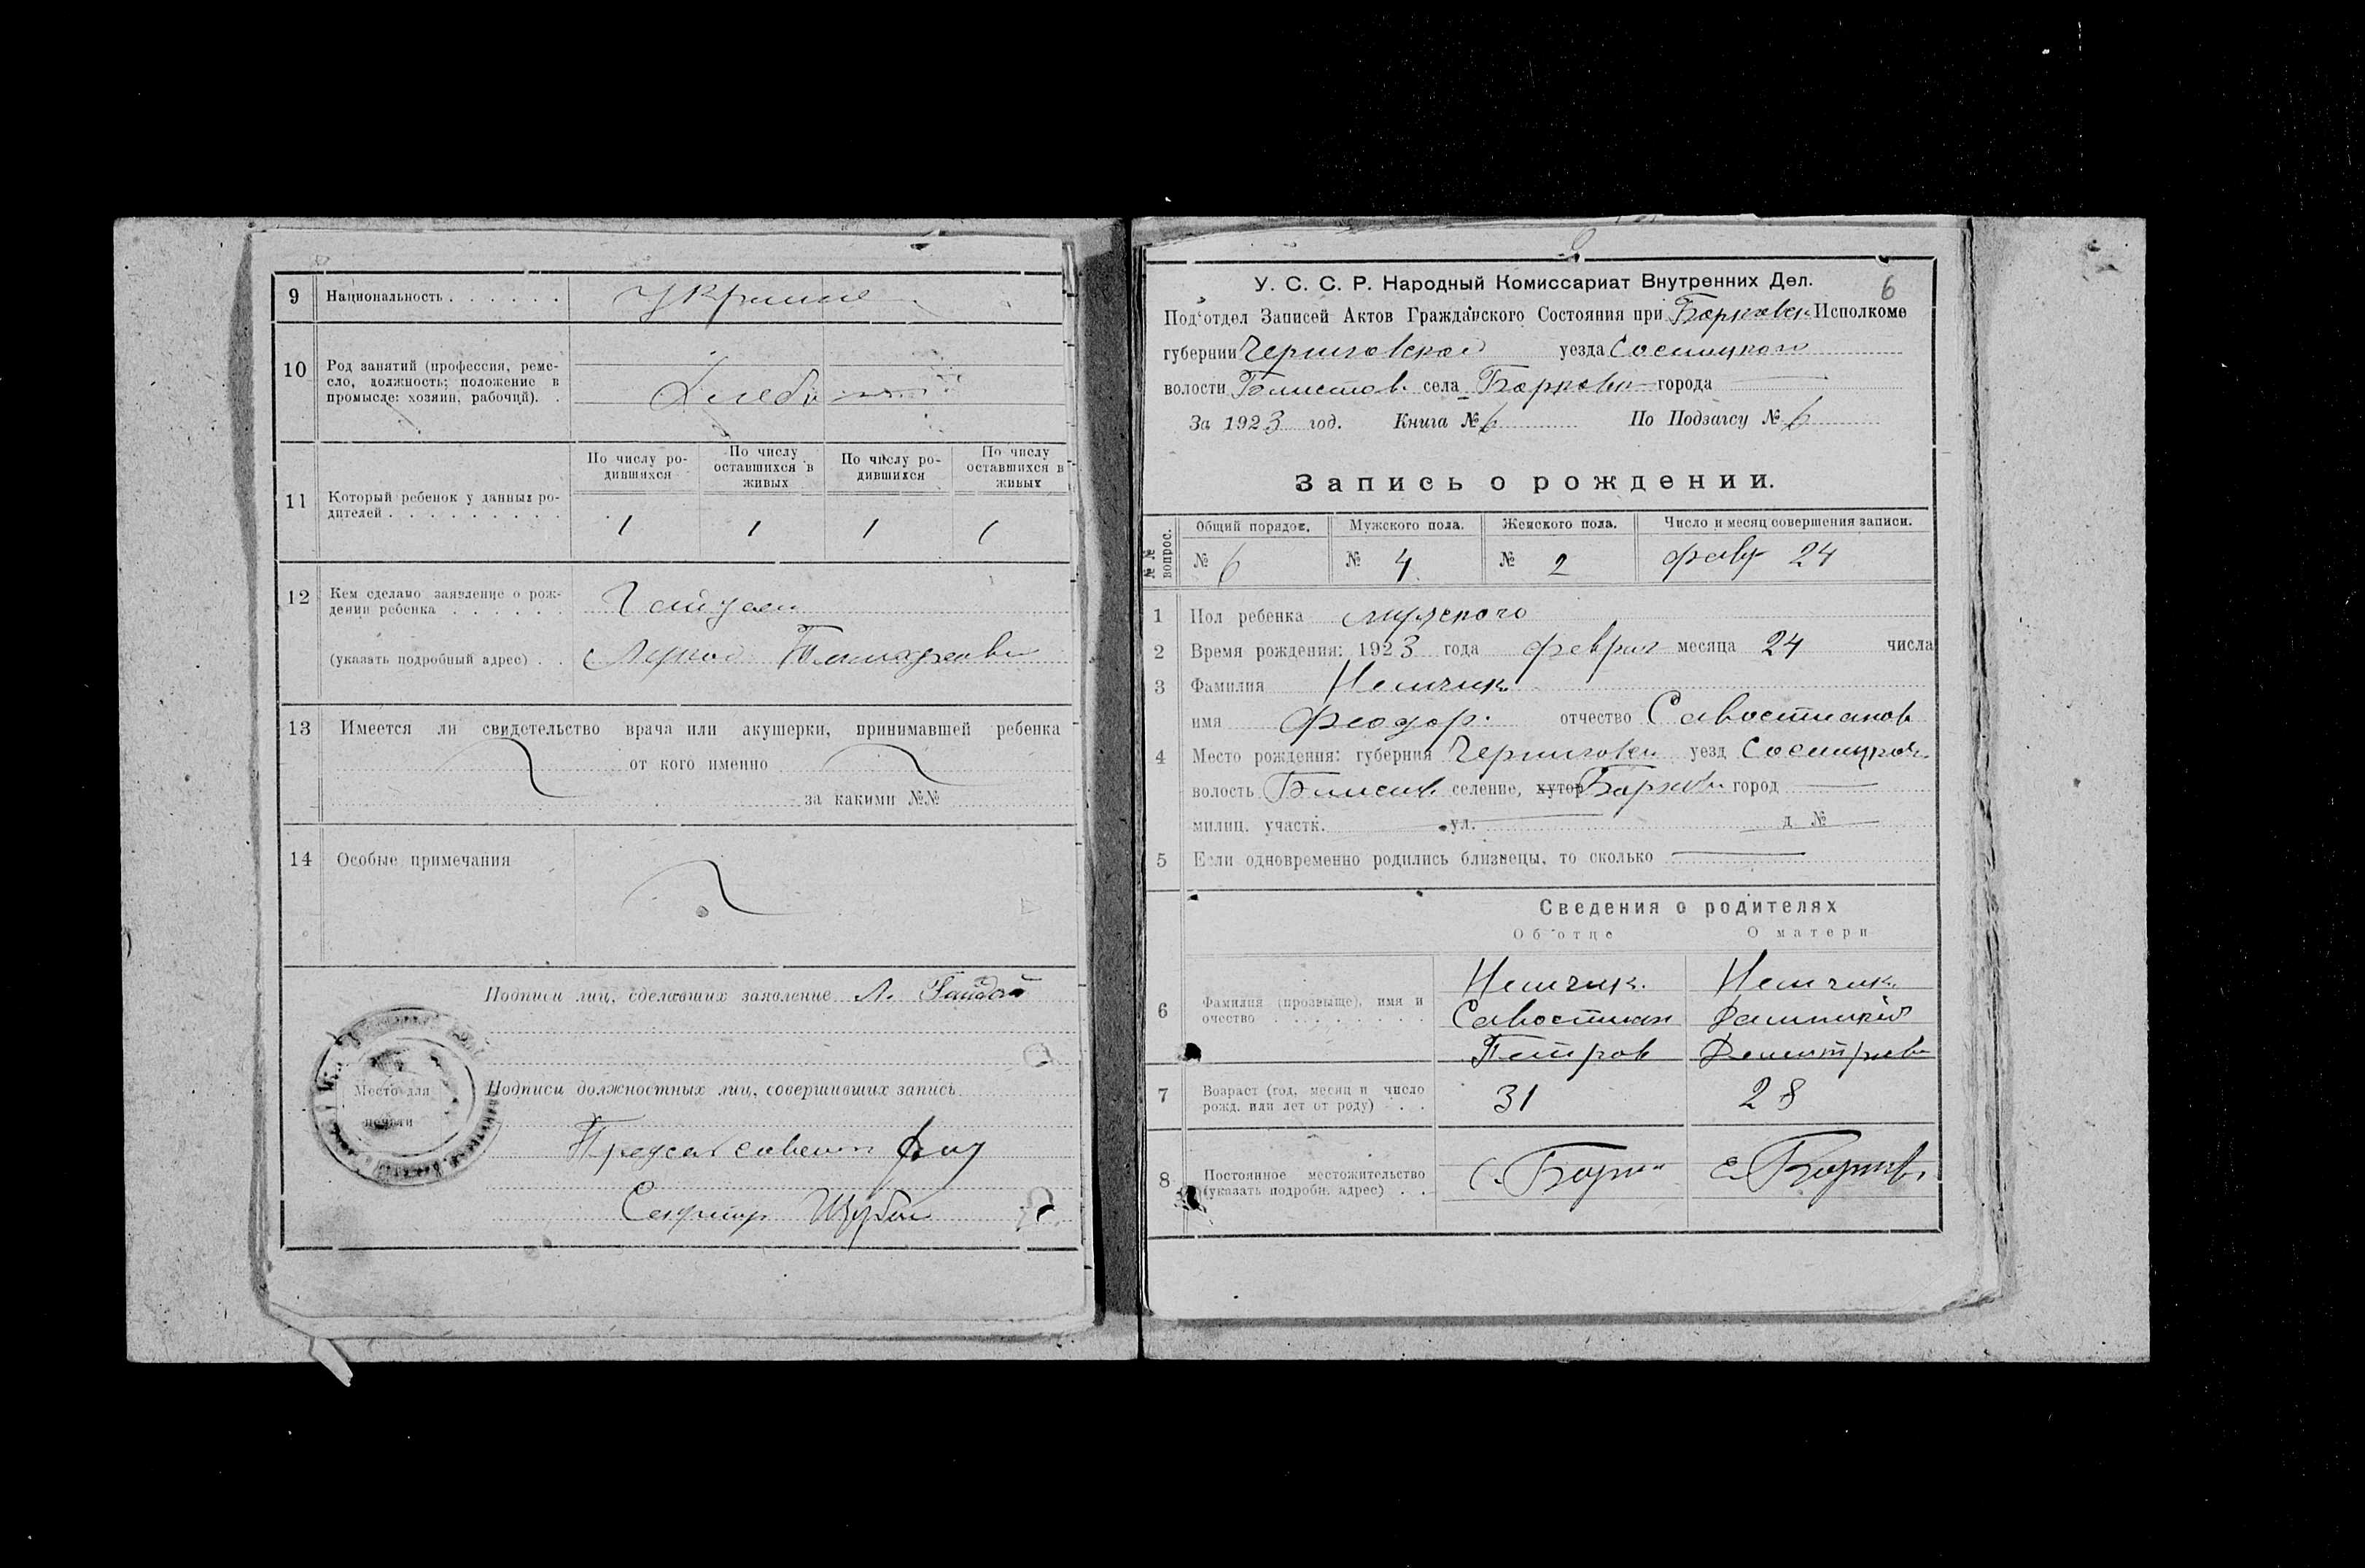 9 Национальность . . . . . .
10 Род занятий (профессия, реме-
сло, должность; положение в
промысле: хозяин, рабочий). .
По числу ро-
дившихся
По числу
оставшихся в
живых
По числу ро-
дившихся
По числу
оставшихся в
живых
11 Который ребенок у данных ро-
дителей . . . . . . . . . .
1 1 1 1
12 Кем сделано заявление о рож-
дении ребенка . . . . . .
(указать подробный адрес) . .
13 Имеется ли свидетельство врача или акушерки, принимавшей ребенка
от кого именно
за какими №№
14 Особые примечания
Подписи лиц, сделавших заявление Л. Гайдай
Место для
печати
Подписи должностных лиц, совершивших запись
Секретар
6
У. С. С. Р. Народный Комиссариат Внутренних Дел.
Под'отдел Записей Актов Гражданского Состояния при Борковск Исполкоме
губернии Черниговской уезда Сосницкого
волости села города
За 1923 год. Книга № 6 По Подзагсу № 6
Запись о рождении.
№№ вопрос.
Общий порядок. Мужского пола. Женского пола. Число и месяц совершения записи.
№ 6 № 4 № 2 февр 24
1 Пол ребенка мужского
2 Время рождения: 1923 года феврал месяца 24 числа
3 Фамилия Немчик
имя Феодор. отчество Савостианов
4 Место рождения: губерния Черниговск уезд Сосницког
волость селение, хутор город
милиц. участк. ул. д №
5 Если одновременно родились близнецы, то сколько
Сведения о родителях
Об отце О матери
6 Фамилия (прозвище), имя и
очество . . . . . . . .
Немчик. Немчик
Савостиан
Петров Демитриев
7 Возраст (год, месяц и число
рожд. или лет от роду) . .
31 28
8 Постоянное местожительство
(указать подробн. адрес) . .